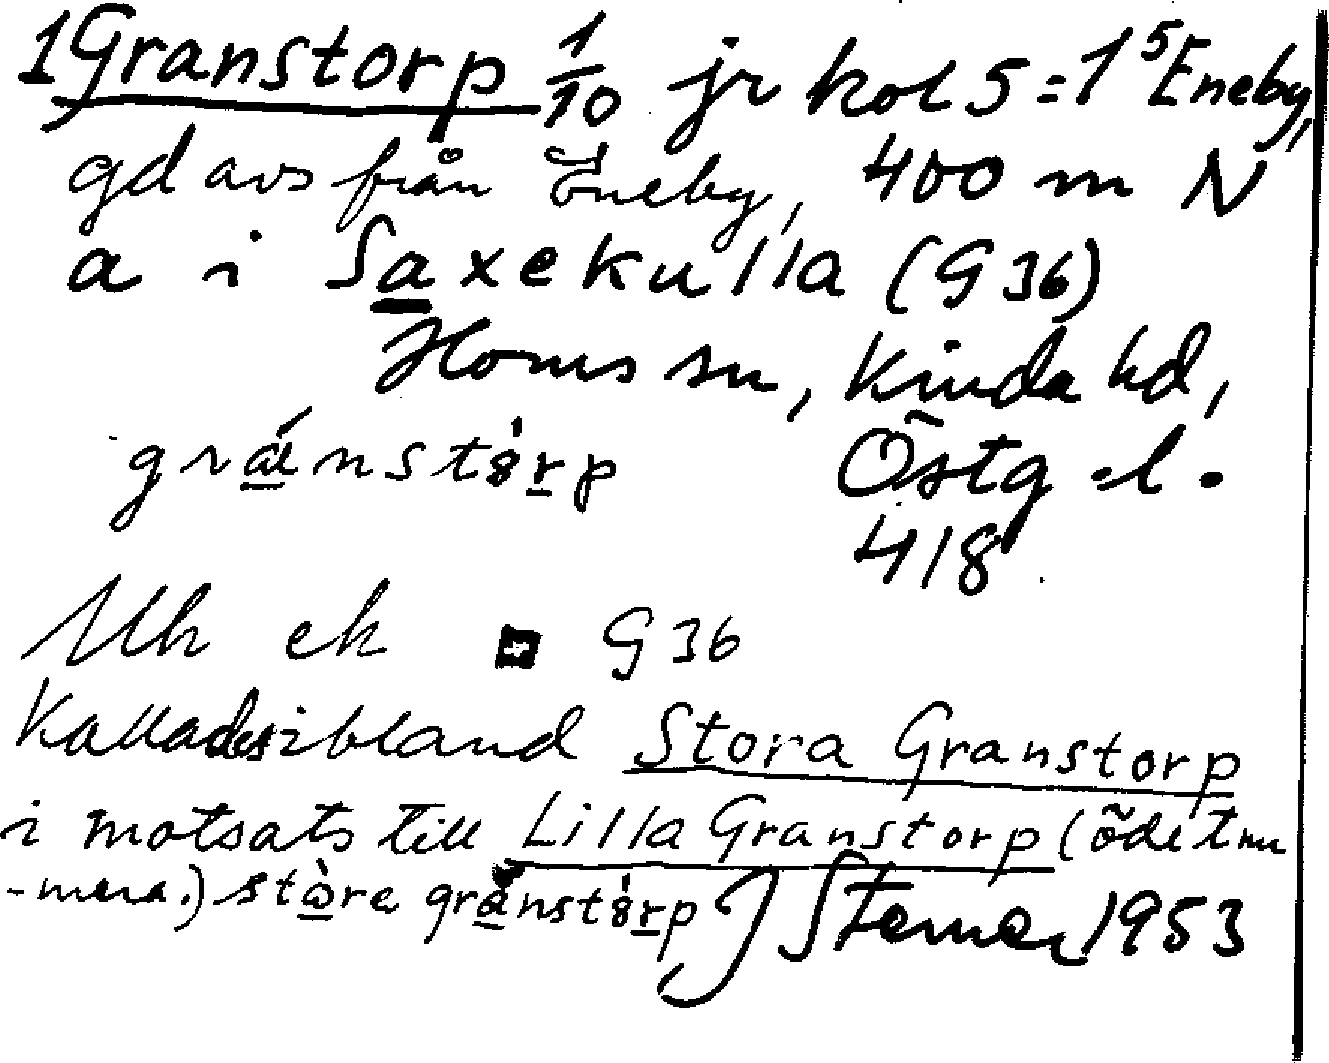 1Granstorp 1/10 jr kol 5 = 1 5Eneby,
gd avs från Eneby, 400 m N
a i Saxekulla (G 36)
Horns sn, Kinda hd,
gránstòrp Östg.l.
418
Uh ek G 36
Kallades ibland Stora Granstorp
i motsats till Lilla Granstorp (öde t nu
-mera.) stòra gránstòrp J Sterner 1953